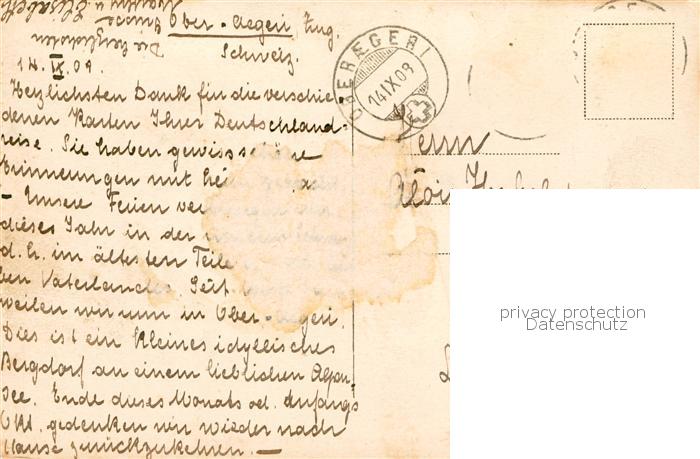 Die herzlichsten
Grüsse
Martin u. Elisabeth
Ober-Aegeri, Zug.
Schweiz.
14. IX. 09.
Herzlichsten Dank für die verschie-
denen Karten Ihrer Deutschland-
reise. Sie haben gewiss schöne
Erinnerungen mit hei
– Unsere Ferien ver
dieses Jahr in der
d. h. im ältesten Teile
ben Vaterlandes. Seit
weilen wir nun in Ober-Aegeri.
Dies ist ein kleines idyllisches
Bergdorf an einem lieblichen Alpen-
see. Ende dieses Monats od. Anfangs
Okt. gedenken wir wieder nach
Hause zurückzukehren. —
OBERÆGERI
14 IX 09
Herrn
Alois
privacy protection
Datenschutz